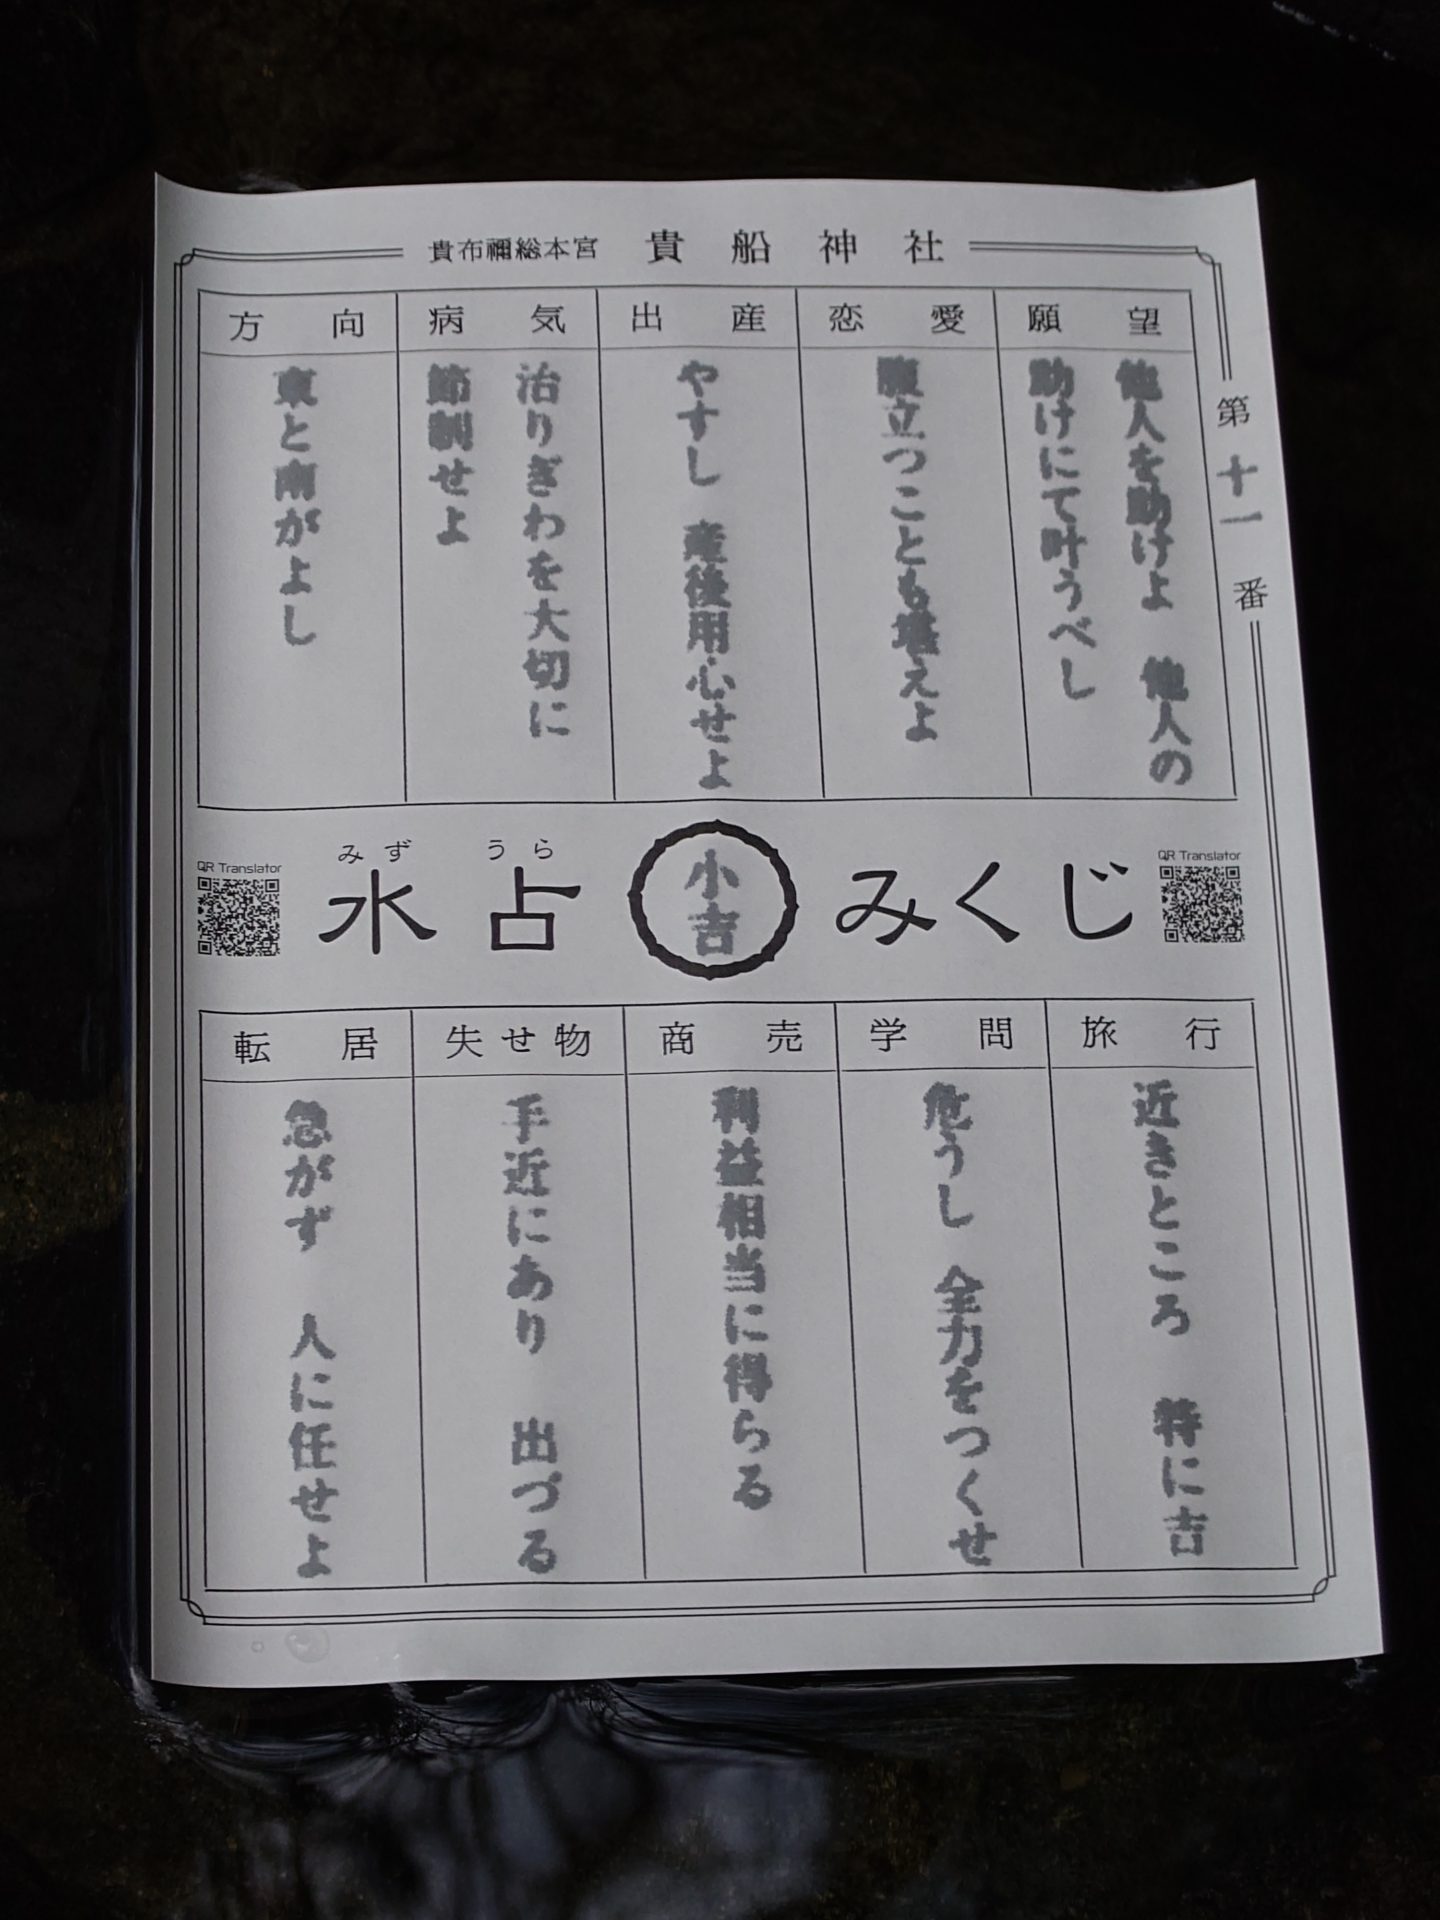 貴布禰総本宮 貴船神社
第十一番
願望
他人を助けよ 他人の
助けにて叶うべし
恋愛
腹立つことも堪えよ
出産
やすし 産後用心せよ
病気
治りぎわを大切に
節制せよ
方向
東と南がよし
みず うら
水占 小吉 みくじ
QR Translator
QR Translator
旅行
近きところ 特に吉
学問
危うし 全力をつくせ
商売
利益相当に得らる
失せ物
手近にあり 出づる
転居
急がず 人に任せよ